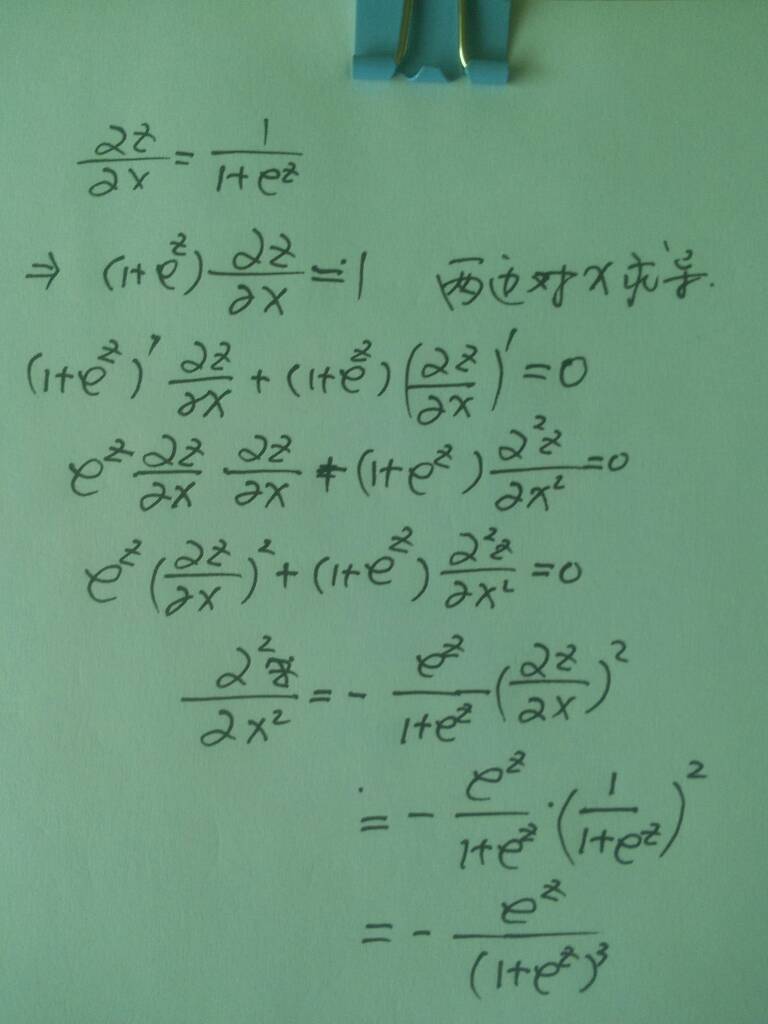 ∂z/∂x = 1/(1+e^z)
⇒ (1+e^z) ∂z/∂x = 1 两边对x求导.
(1+e^z)' ∂z/∂x + (1+e^z) (∂z/∂x)' = 0
e^z ∂z/∂x ∂z/∂x + (1+e^z) ∂²z/∂x² = 0
e^z (∂z/∂x)² + (1+e^z) ∂²z/∂x² = 0
∂²z/∂x² = - e^z/(1+e^z) (∂z/∂x)²
= - e^z/(1+e^z) · (1/(1+e^z))²
= - e^z/(1+e^z)³